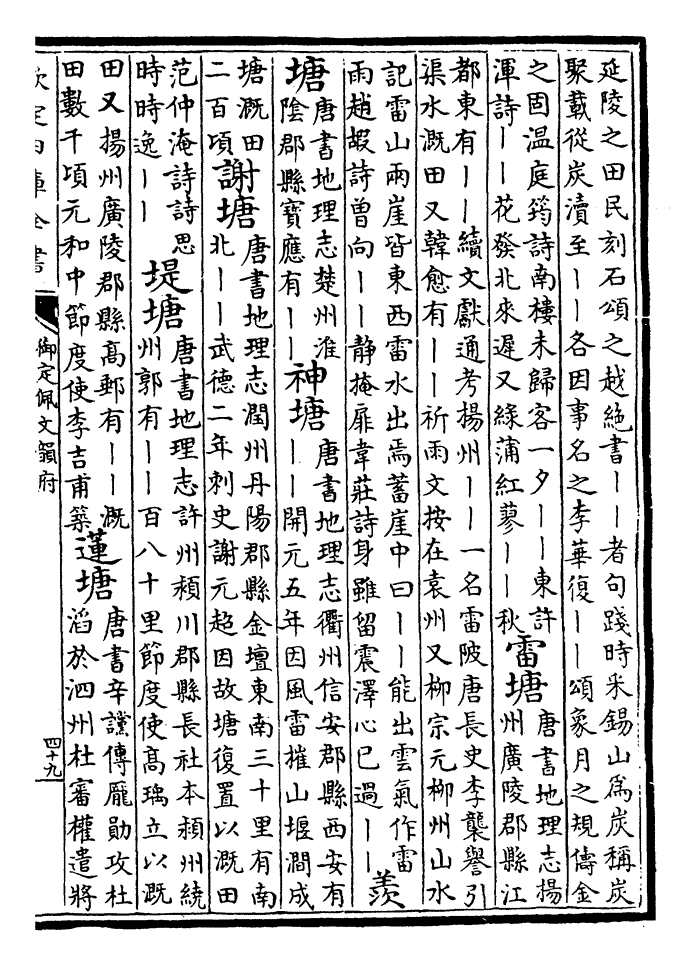 延陵之田民刻石頌之越絕書——者句踐時采錫山為炭稱炭
聚載從炭瀆至——各因事名之李華復——頌象月之規儔金
之固温庭筠詩南樓未歸客一夕——東許
渾詩——花發北來遲又綠蒲紅蓼——秋
雷塘
唐書地理志揚
州廣陵郡縣江
都東有——續文獻通考揚州——一名雷陂唐長史李襲譽引
渠水溉田又韓愈有——祈雨文按在袁州又柳宗元柳州山水
記雷山兩崖皆東西雷水出焉蓄崖中曰——能出雲氣作雷
雨趙嘏詩曾向——靜掩扉韋莊詩身雖留震澤心已過——
羨
塘
唐書地理志楚州淮
陰郡縣寶應有——
神塘
唐書地理志衢州信安郡縣西安有
——開元五年因風雷摧山堰澗成
塘溉田
二百頃
謝塘
唐書地理志潤州丹陽郡縣金壇東南三十里有南
北——武德二年刺史謝元超因故塘復置以溉田
范仲淹詩詩思
時時逸——
堤塘
唐書地理志許州潁川郡縣長社本潁州繞
州郭有——百八十里節度使高瑀立以溉
田又揚州廣陵郡縣高郵有——溉
田數千頃元和中節度使李吉甫築
蓮塘
唐書辛讜傳龐勛攻杜
滔於泗州杜審權遣將
欽定四庫全書
御定佩文韻府
四十九